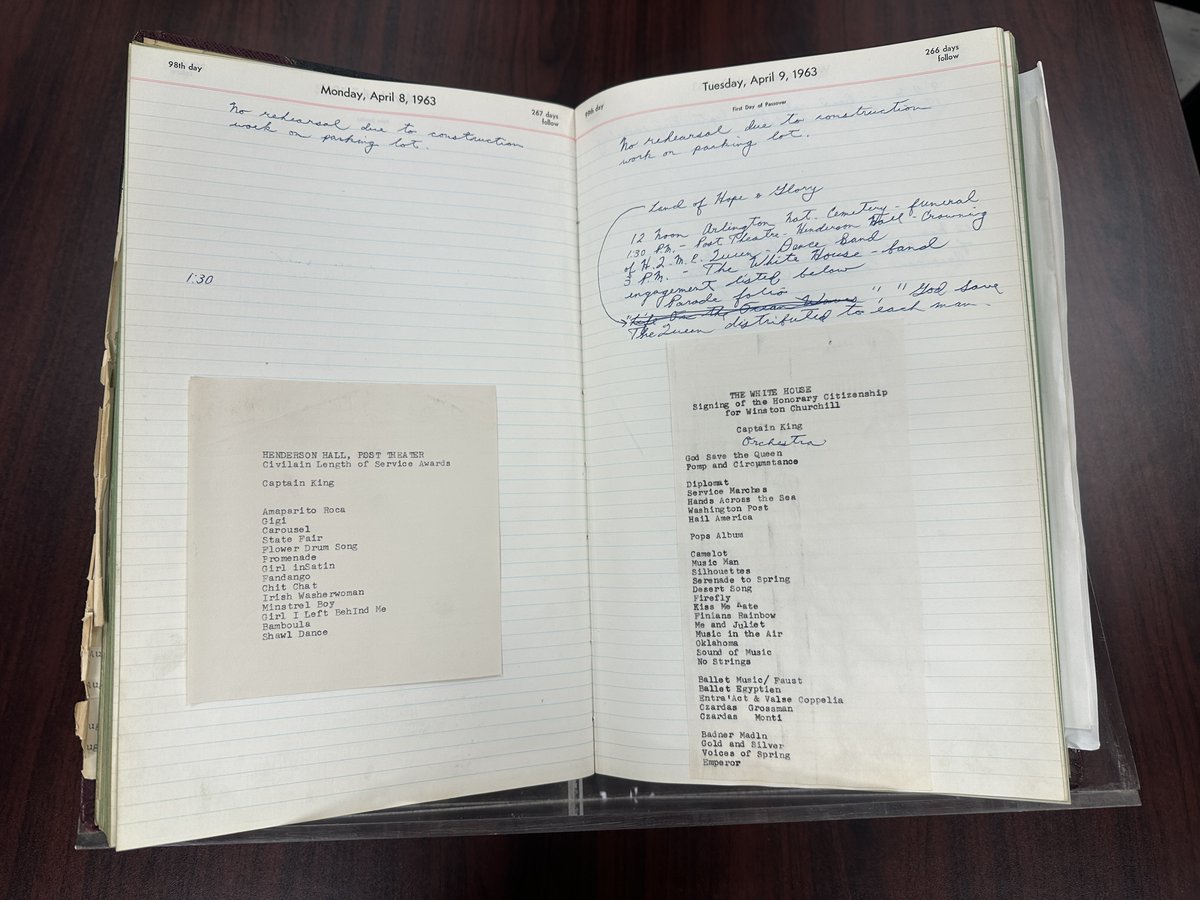 98th day
Monday, April 8, 1963
267 days
follow
No rehearsal due to construction
work on parking lot.
1:30
HENDERSON HALL, POST THEATER
Civilain Length of Service Awards
Captain King
Amaparito Roca
Gigi
Carousel
State Fair
Flower Drum Song
Promenade
Girl inSatin
Fandango
Chit Chat
Irish Washerwoman
Minstrel Boy
Girl I Left BehInd Me
Bamboula
Shawl Dance
99th day
Tuesday, April 9, 1963
266 days
follow
First Day of Passover
No rehearsal due to construction
work on parking lot.
Land of Hope & Glory
12 Noon Arlington Nat. Cemetery - funeral
1:30 P.M. - Post Theatre - Henderson Hall - Crowning
of H.Q.M.C. Queen - Dance Band
3 P.M. - The White House - band
engagement listed below
Parade folio
"Life On the Ocean Waves " " God Save
The Queen distributed to each man
THE WHITE HOUSE
Signing of the Honorary Citizenship
for Winston Churchill
Captain King
Orchestra
God Save the Queen
Pomp and Circumstance
Diplomat
Service Marches
Hands Across the Sea
Washington Post
Hail America
Pops Album
Camelot
Music Man
Silhouettes
Serenade to Spring
Desert Song
Firefly
Kiss Me Kate
Finians Rainbow
Me and Juliet
Music in the Air
Oklahoma
Sound of Music
No Strings
Ballet Music/ Faust
Ballet Egyptien
Entra'Act & Valse Coppelia
Czardas Grossman
Czardas Monti
Badner Madln
Gold and Silver
Voices of Spring
Emperor